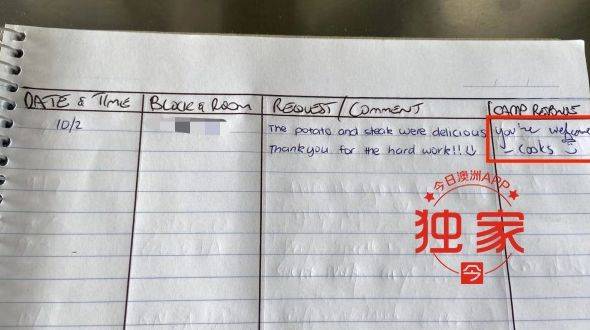 DATE & TIME BLOCK & ROOM REQUEST / COMMENT CAMP RESPONSE
10/2 The potato and steak were delicious you're welcome
Thankyou for the hard work!!! - cooks
今日澳洲APP
独家
今